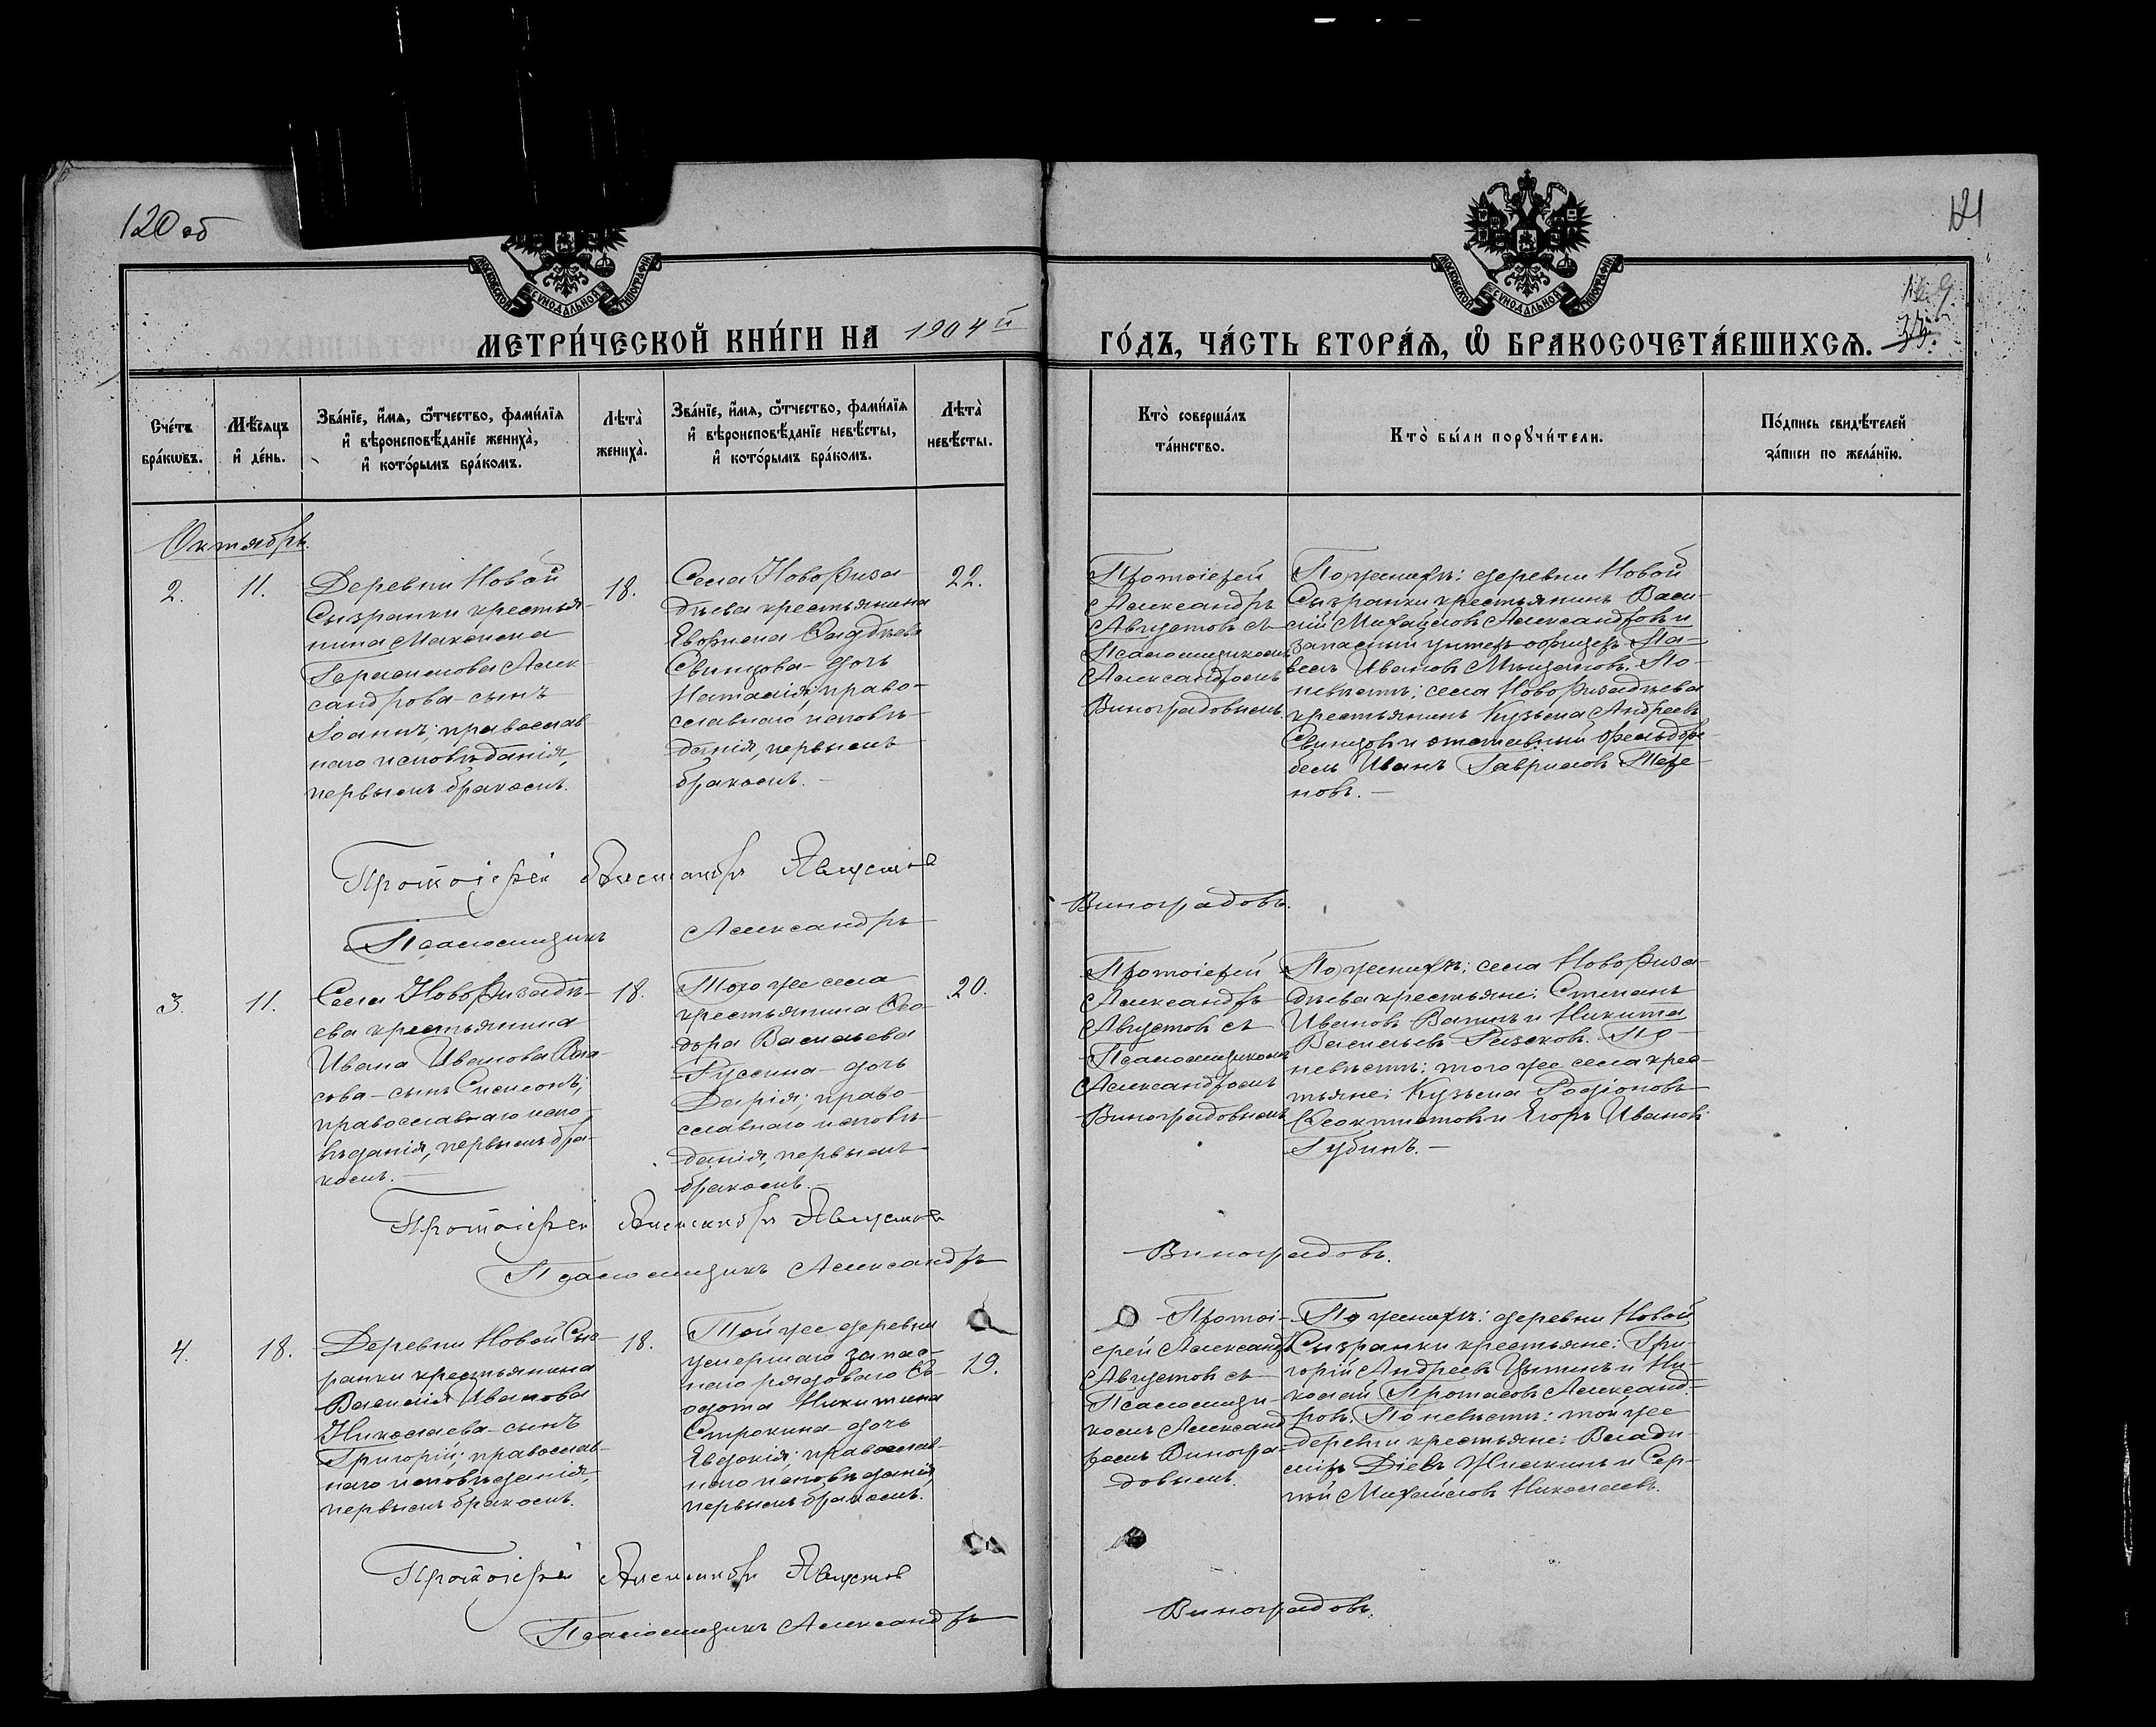 120 об
121
МОСКОВСКОЙ СѴНОДАЛЬНОЙ ТИПОГРАФІИ
МОСКОВСКОЙ СѴНОДАЛЬНОЙ ТИПОГРАФІИ
МЕТРИ́ЧЕСКОЙ КНИ́ГИ НА 1904 й
ГО́ДЪ, ЧА́СТЬ ВТОРА́Ѧ, Ѽ БРАКОСОЧЕТА́ВШИХСѦ.
Сче́тъ
бра́кѡвъ.
Мѣ́сѧцъ
и҆ де́нь.
Зва́нїе, и҆́мѧ, ѻ҆́тчество, фами́лїѧ
и҆ вѣроисповѣ́данїе жениха̀,
и҆ кото́рымъ бра́комъ.
Лѣта̀
жениха̀.
Зва́нїе, и҆́мѧ, ѻ҆́тчество, фами́лїѧ
и҆ вѣроисповѣ́данїе невѣ́сты,
и҆ кото́рымъ бра́комъ.
Лѣта̀
невѣ́сты.
Кто̀ соверша́лъ
та́инство.
Кто̀ бы́ли порꙋчи́тели.
По́дпись свидѣ́телей
за́писи по жела́нїю.
Октябрь.
2.
11.
Деревни Новой
Сызранки крестья-
нина Максима
Герасимова Алек-
сандрова-сынъ
Іоаннъ; православ
наго исповѣданія,
первымъ бракомъ.
18.
Села Новофиза-
дѣева крестьянина
Евфима
Свинцова-дочь
Наталія; право-
славнаго исповѣ-
данія, первымъ
бракомъ.-
22.
Протоіерей
Александръ
Августовъ съ
Псаломщикомъ
Александромъ
Виноградовымъ.
По женихѣ: деревни Новой
Сызранки крестьянинъ Васи-
лій Михайловъ Александровъ и
запасный унтеръ-офицеръ Па-
велъ Ивановъ По
невѣстѣ: села Новофизадѣева
крестьянинъ Кузьма Андреевъ
Свинцовъ и отставный фельдфе-
бель Иванъ Гавриловъ Тере-
новъ.-
Протоіерей Александръ Августовъ
Псаломщикъ Александръ
Виноградовъ.
3.
11.
Села Новофизадѣ-
ева крестьянина
Ивана Иванова Вла-
сова-сынъ Симеонъ;
православнаго испо-
вѣданія, первымъ бра-
комъ.-
18.
Того же села
крестьянина Ѳео-
дора Васильева
Русскина-дочь
Дарія; право-
славнаго исповѣ-
данія, первымъ
бракомъ.-
20.
Протоіерей
Александръ
Августовъ съ
Псаломщикомъ
Александромъ
Виноградовымъ
По женихѣ: села Новофиза-
дѣева крестьяне: Степанъ
Ивановъ и Никита
Васильевъ По
невѣстѣ: того же села крес-
тьяне: Кузьма Родіоновъ
Ѳеоктистовъ и Егоръ Ивановъ
Губинъ.-
Протоіерей Александръ Августовъ
Псаломщикъ Александръ
Виноградовъ.
4.
18.
Деревни Новой Сыз-
ранки крестьянина
Василія Иванова
Николаева-сынъ
Григорій; православ-
наго исповѣданія,
первымъ бракомъ.
18.
Той же деревни
умершаго запас-
наго рядоваго Ѳе-
одота Никитина
Строкина-дочь
Евдокія; православ-
наго исповѣданія
первымъ бракомъ.
19.
Протоі-
ерей Александръ
Августовъ съ
Псаломщи-
комъ Александ
ромъ Виногра-
довымъ.
По женихѣ: деревни Новой
Сызранки крестьяне: Гри-
горій Андреевъ и Ни-
колай Протасовъ Александ-
ровъ. По невѣстѣ: той же
деревни крестьяне: Влади-
міръ Діевъ и Сер-
гѣй Михайловъ Николаевъ.
Протоіерей Александръ Августовъ
Псаломщикъ Александръ
Виноградовъ.